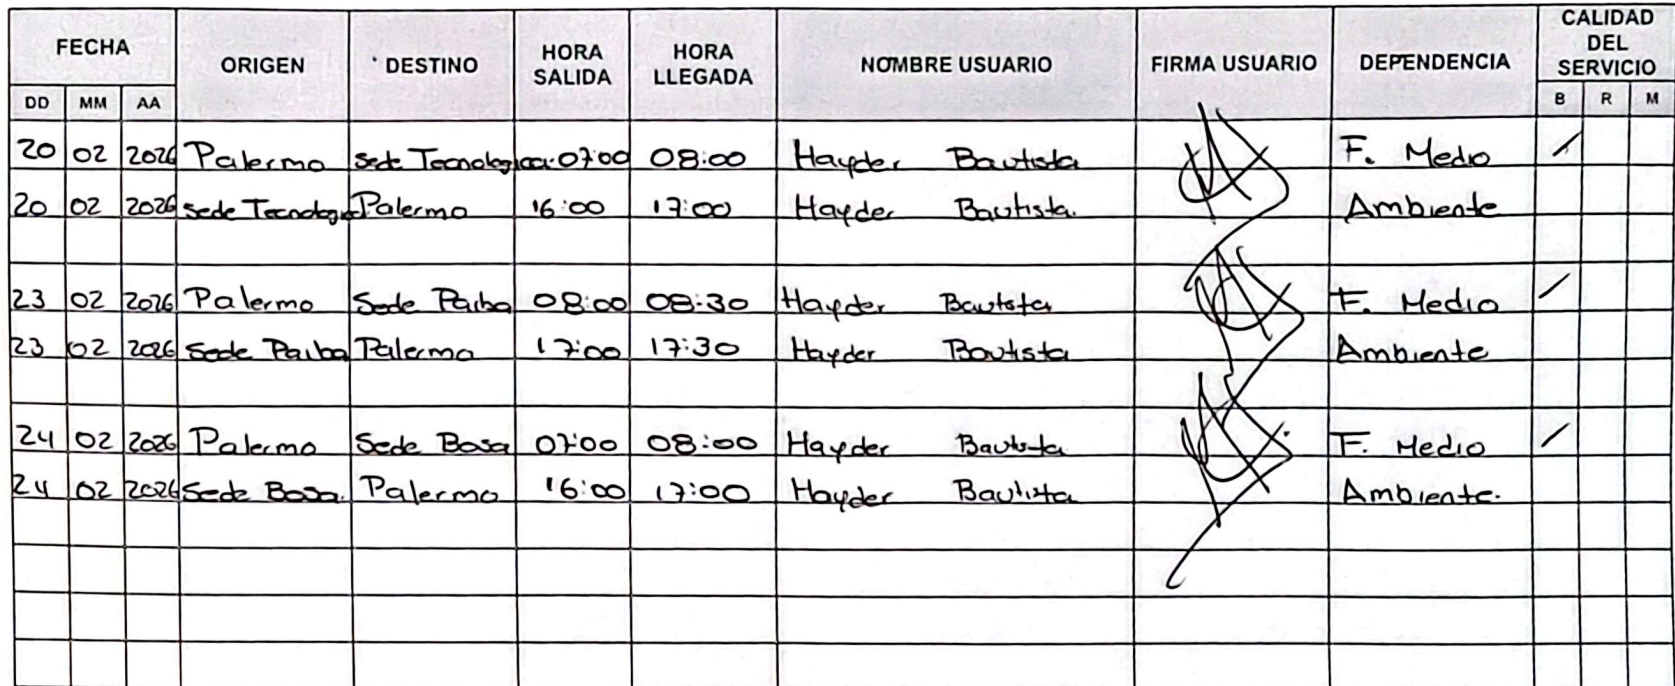 FECHA ORIGEN DESTINO HORA SALIDA HORA LLEGADA NOMBRE USUARIO FIRMA USUARIO DEPENDENCIA CALIDAD DEL SERVICIO
DD MM AA B R M
20 02 2026 Palermo Sede Tecnologica 07:00 08:00 Hayder Bautista F. Medio
20 02 2026 Sede Tecnologica Palermo 16:00 17:00 Hayder Bautista. Ambiente
23 02 2026 Palermo Sede Paiba 08:00 08:30 Hayder Bautista F. Medio
23 02 2026 Sede Paiba Palermo 17:00 17:30 Hayder Bautista Ambiente
24 02 2026 Palermo Sede Bosa 07:00 08:00 Hayder Bautista F. Medio
24 02 2026 Sede Bosa. Palermo 16:00 17:00 Hayder Bautista Ambiente.